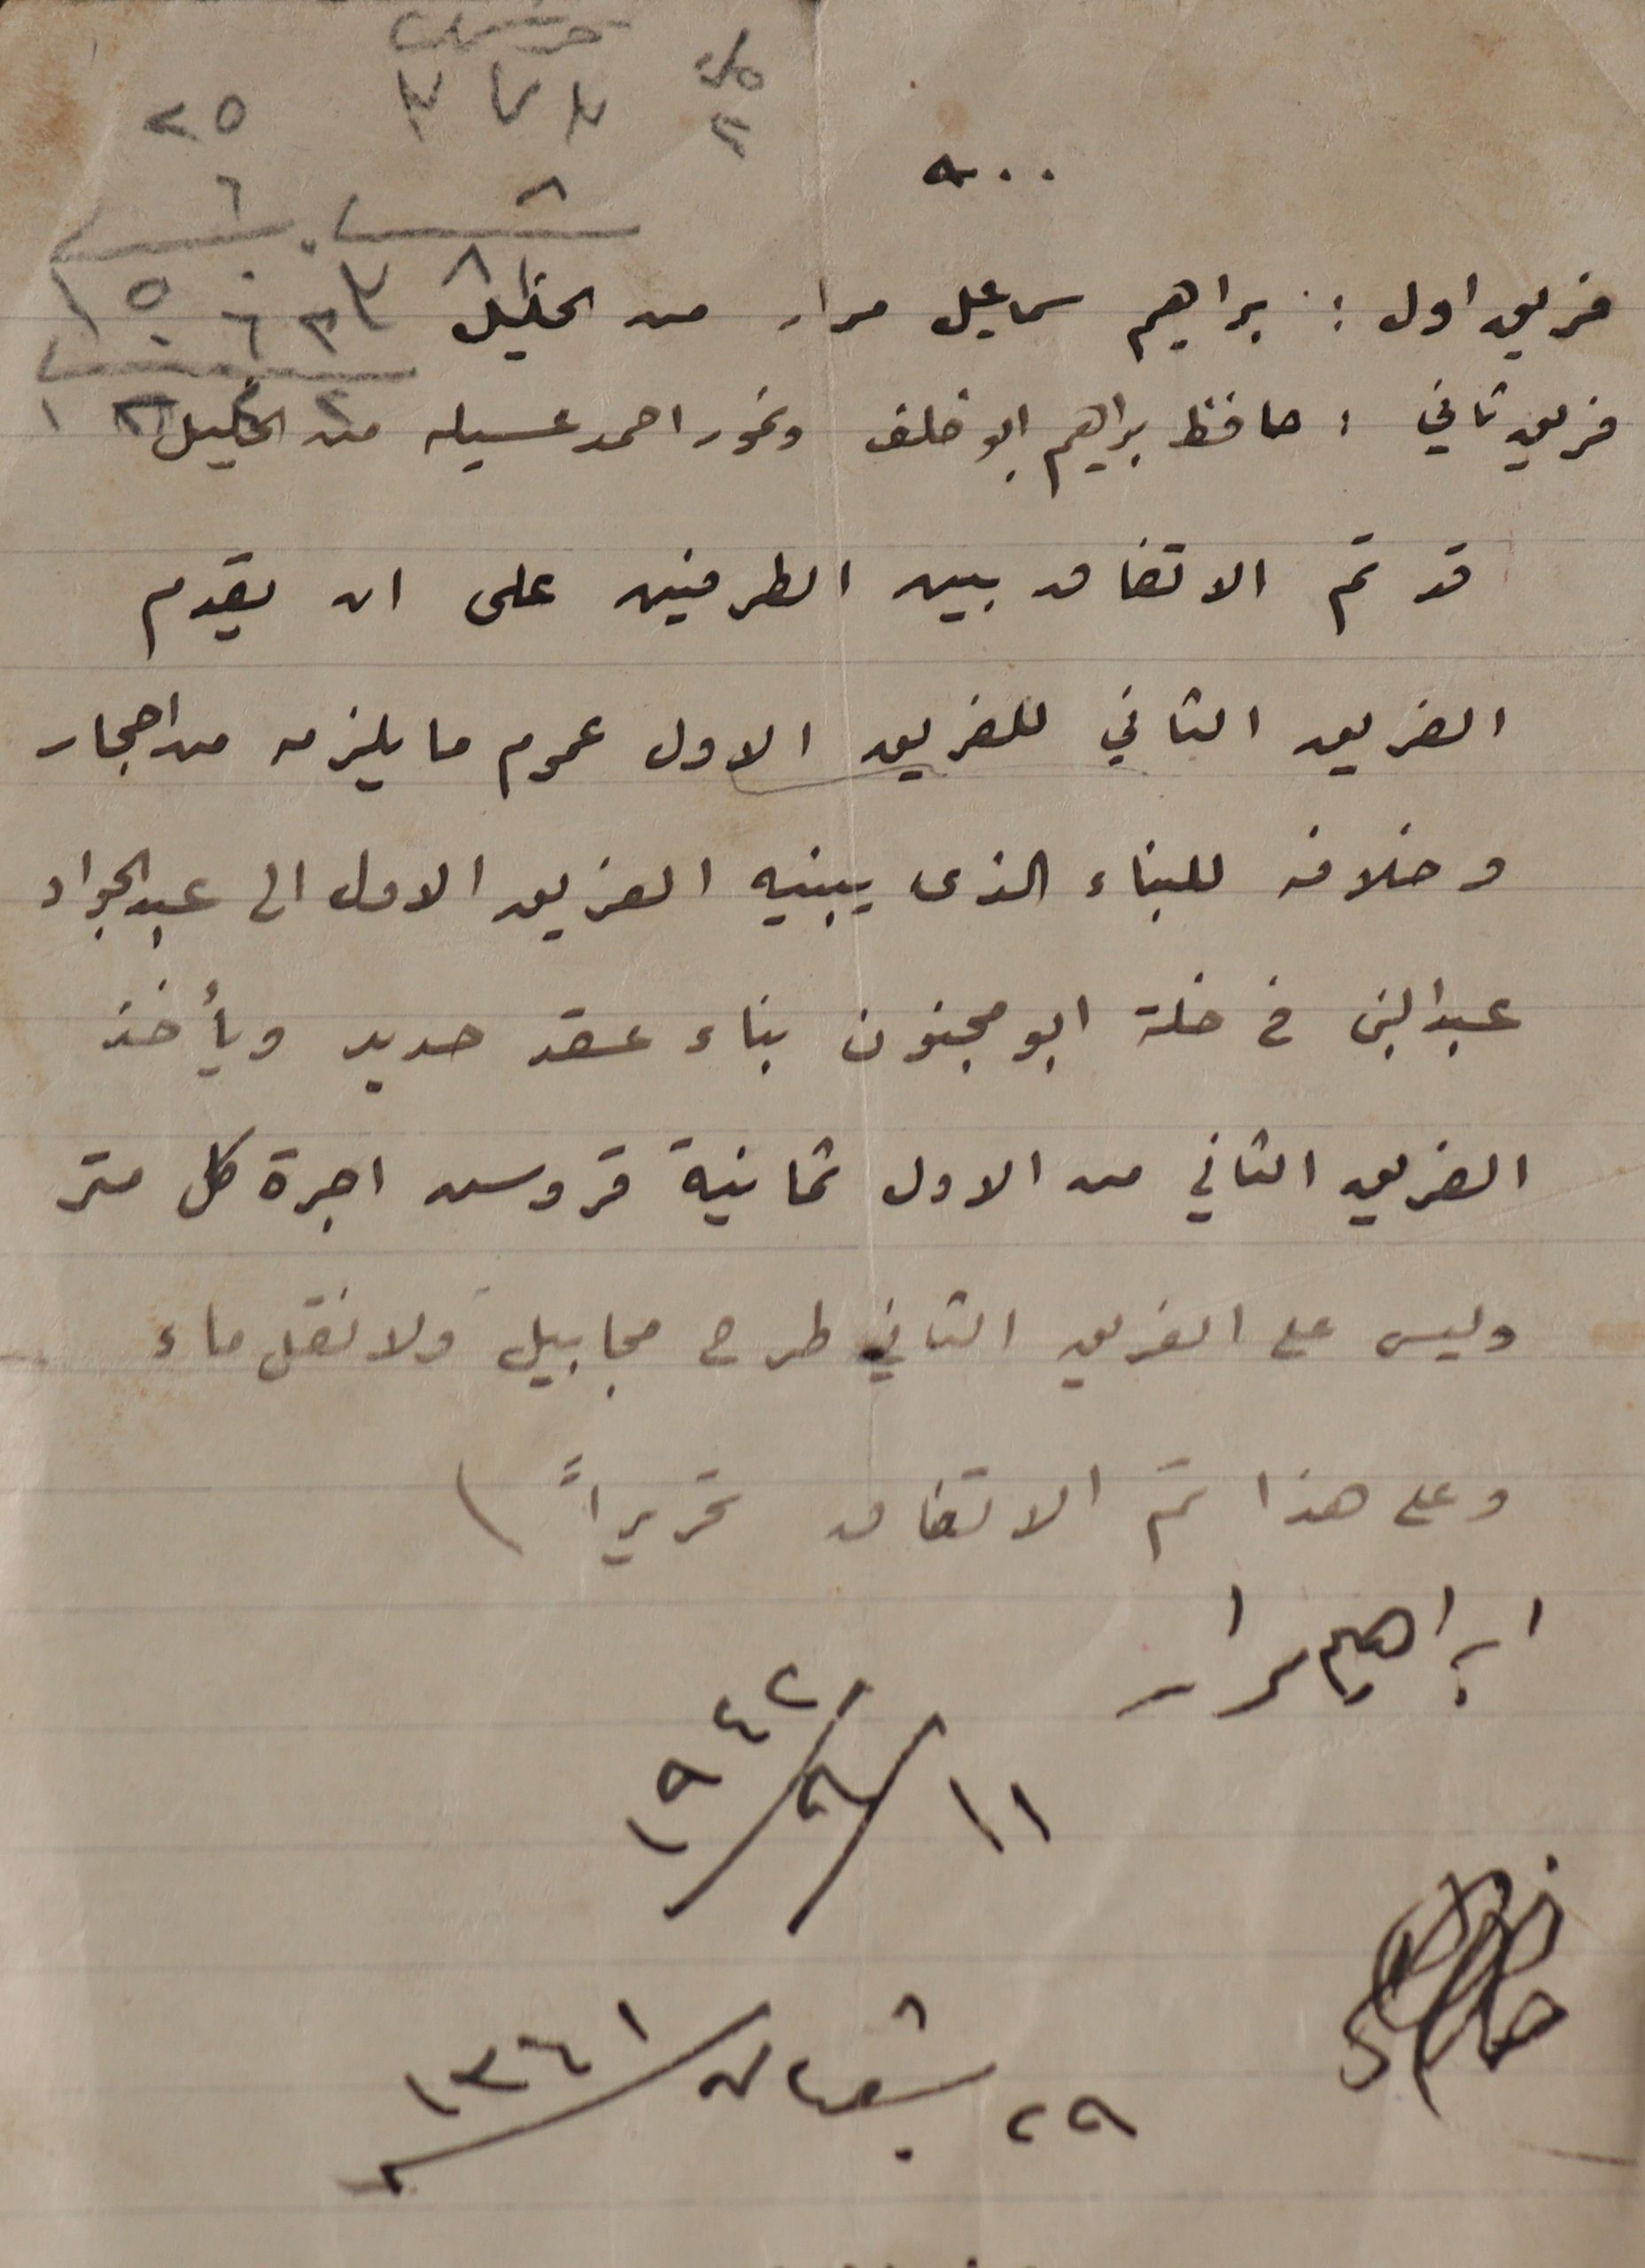 ٩٠٠
٢٥
فريق اول : براهيم سماعيل مرار من الخليل
فريق ثاني : حافظ براهيم ابو خلف ونمور احمد عسيله من الخليل
قد تم الاتفاق بين الطرفين على ان يقدم
الفريق الثاني للفريق الاول عموم ما يلزمه من احجار
وخلافه للبناء الذى يبنيه الفريق الاول الى عبد الجواد
عبد النبي في خلة ابو مجنون بناء عقد حديد ويأخذ
الفريق الثاني من الاول ثمانية قروش اجرة كل متر
وليس على الفريق الثاني طرح مجابيل ولا نقل ماء
وعلى هذا تم الاتفاق تحريراً
ابراهيم مرار
١١/٩/١٩٤٢
٢٩ شعبان ١٣٦١